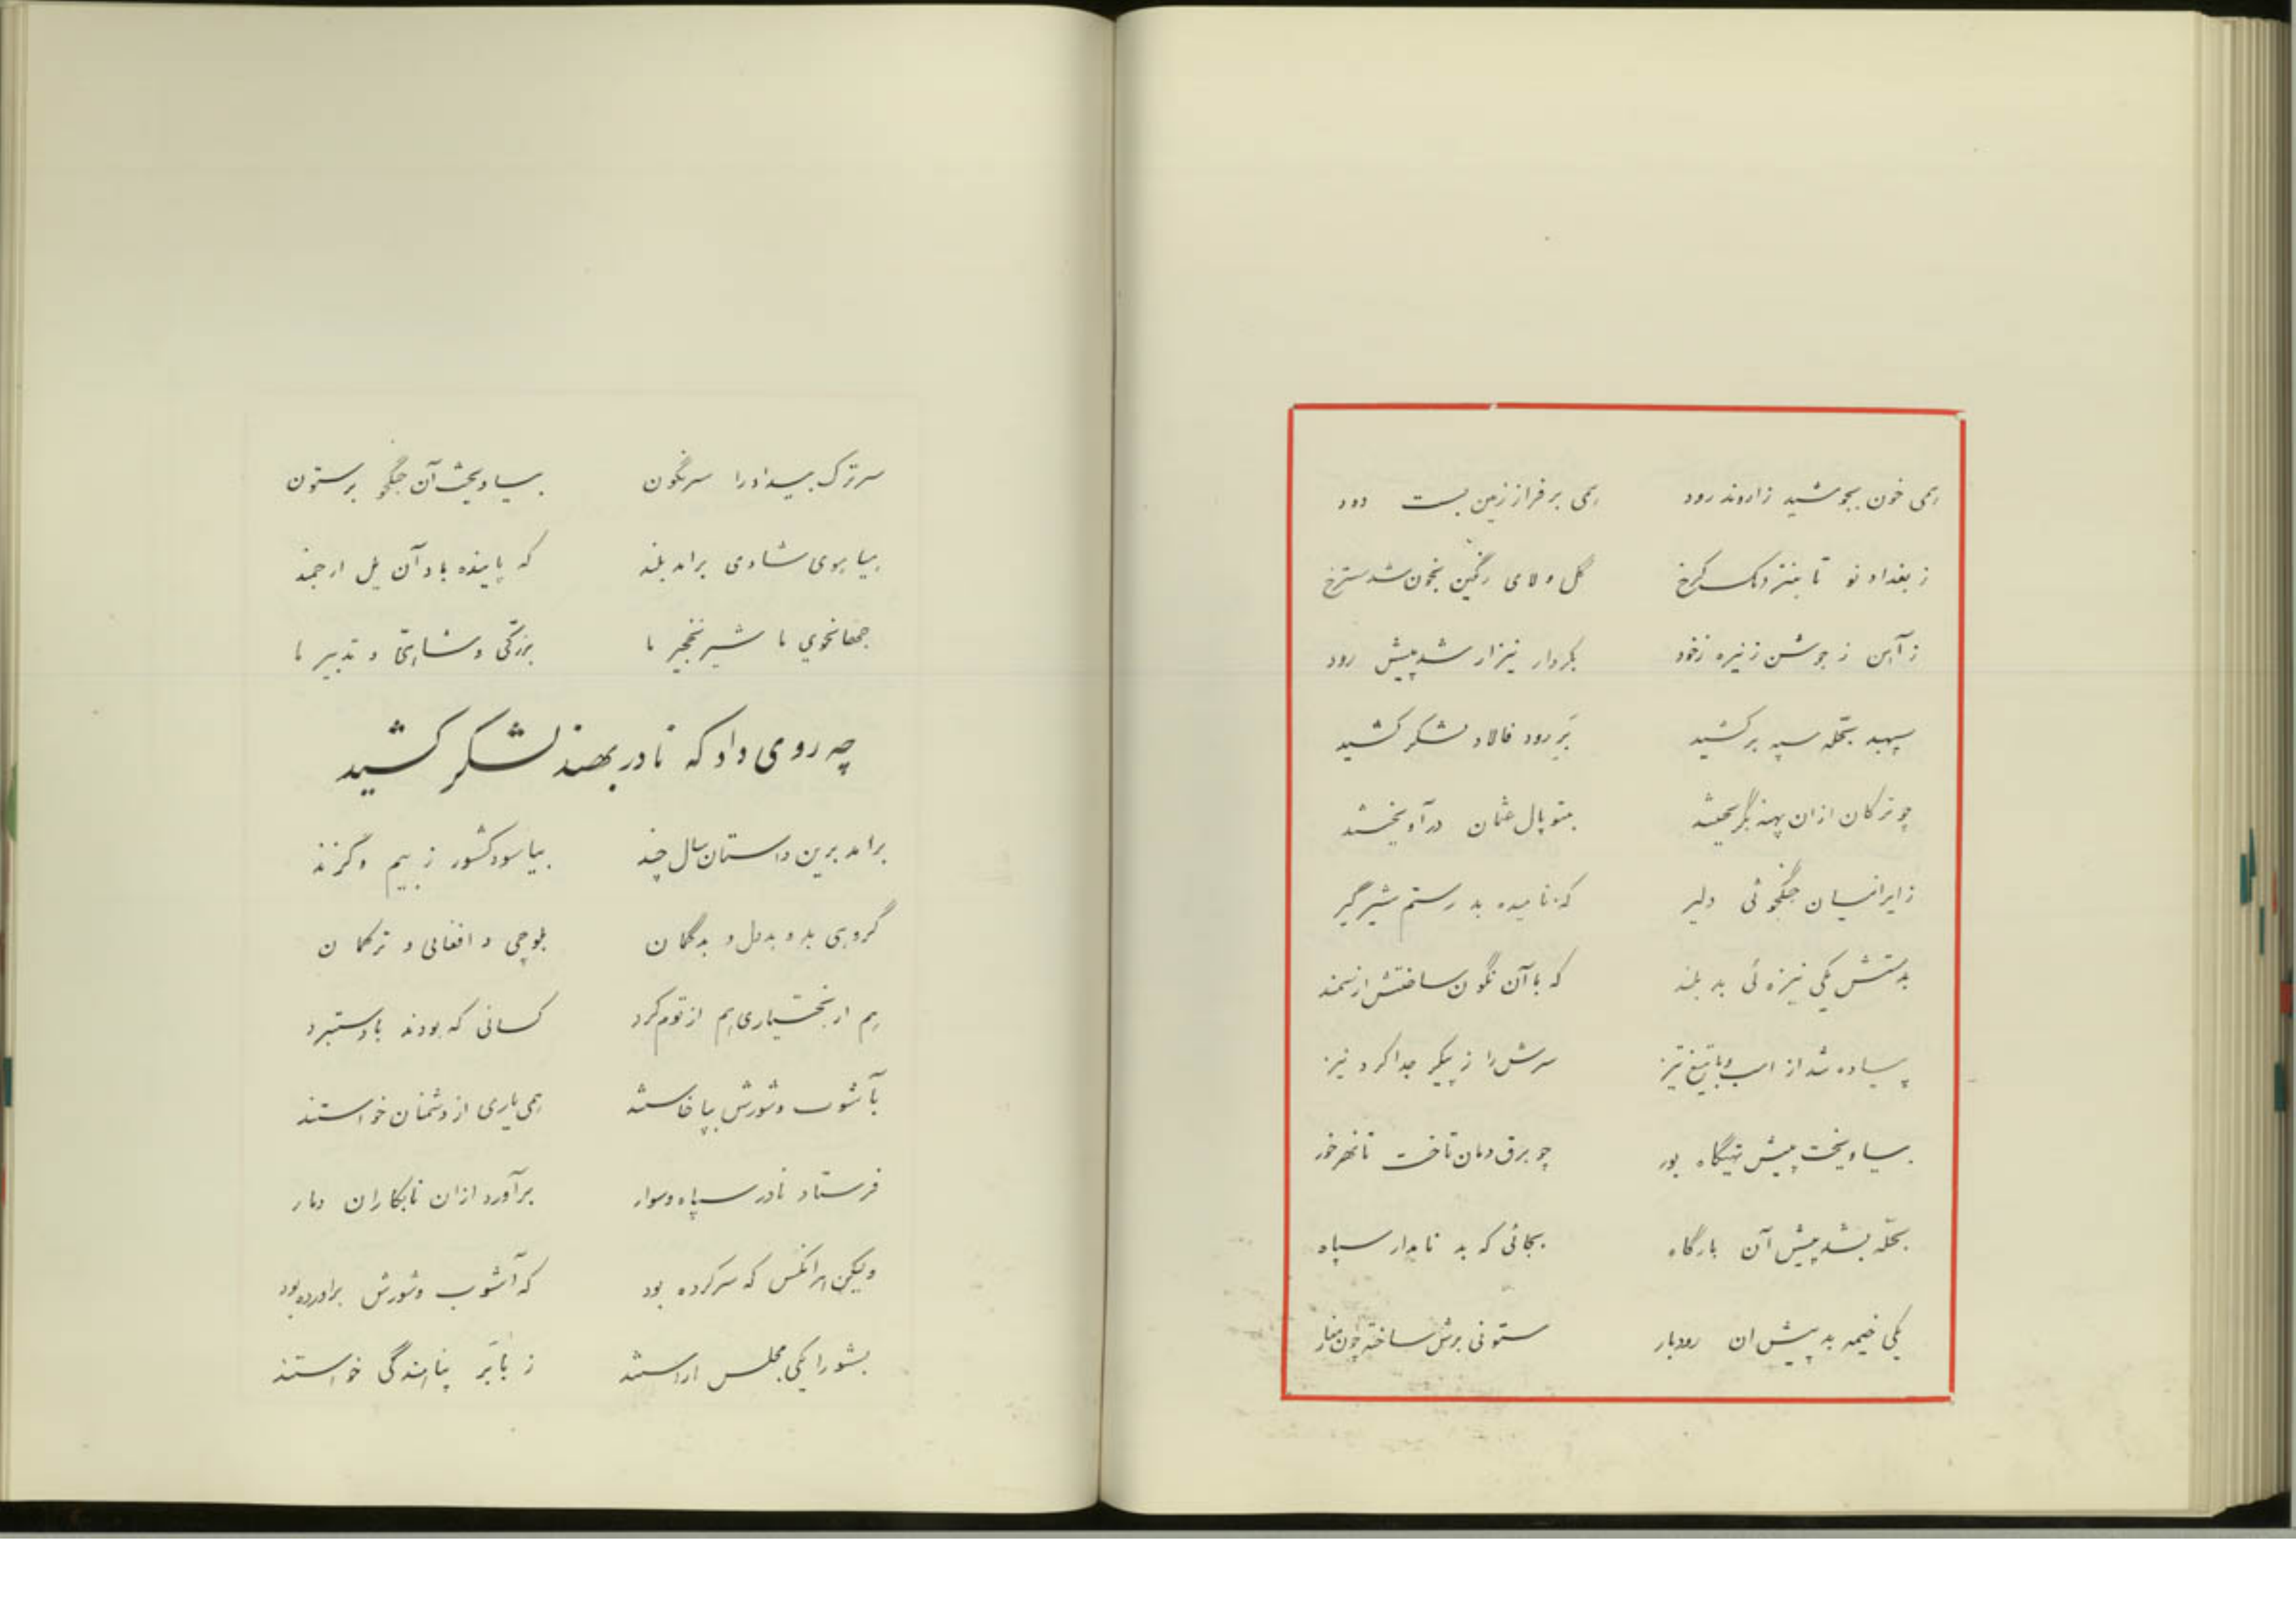 همی خون بجوشید زاروند رود همی بر فراز زمین بست دود
ز بغداد نو تا بنزدیک کرخ گل و لای رنگین بخون شد سترخ
ز آهن ز جوشن ز نیزه ز خود بکردار نیزار شد پیش رود
سپهبد بتحله سپه برکشید بَرِ رود فالاد لشکر کشید
چو ترکان ازان پهنه بگریختند بتوپال عثمان درآویختند
ز ایرانیان جنگجوئی دلیر که نامیده بد رستم شیرگیر
بدستش یکی نیزه ئی بد بلند که با آن نگون ساختش از سمند
پیاده شد از اسب و با تیغ تیز سرش را ز پیکر جدا کرد نیز
بیاویخت پیش تهیگاه بور چو برق دمان تاخت تا نهر خور
بحله بشد پیش آن بارگاه بجائی که بد نامدار سپاه
یکی خیمه بد پیش ان رودبار ستونی برش ساخته چون منار
سر ترک بیدادرا سرنگون بیاویخت آن جنگجو بر ستون
بیا هوی شادی برامد بلند که پاینده باد آن یل ارجمند
جهانجوی ما شیر نخجیر ما بزرگی و شاهی و تدبیر ما
چه روی داد که نادر بهند لشکر کشید
برامد برین داستان سال چند بیاسود کشور ز بیم و گزند
گروهی بد و بددل و بدگمان بلوچی و افغانی و ترکمان
هم از بختیاری هم از قوم کرد کسانی که بودند با دستبرد
بآشوب و شورش بپا خاستند همی یاری از دشمنان خواستند
فرستاد نادر سپاه و سوار برآورد ازان نابکاران دمار
ولیکن هرانکس که سرکرده بود که آشوب و شورش براورده بود
بشورا یکی مجلس اراستند ز بابَر پناهندگی خواستند